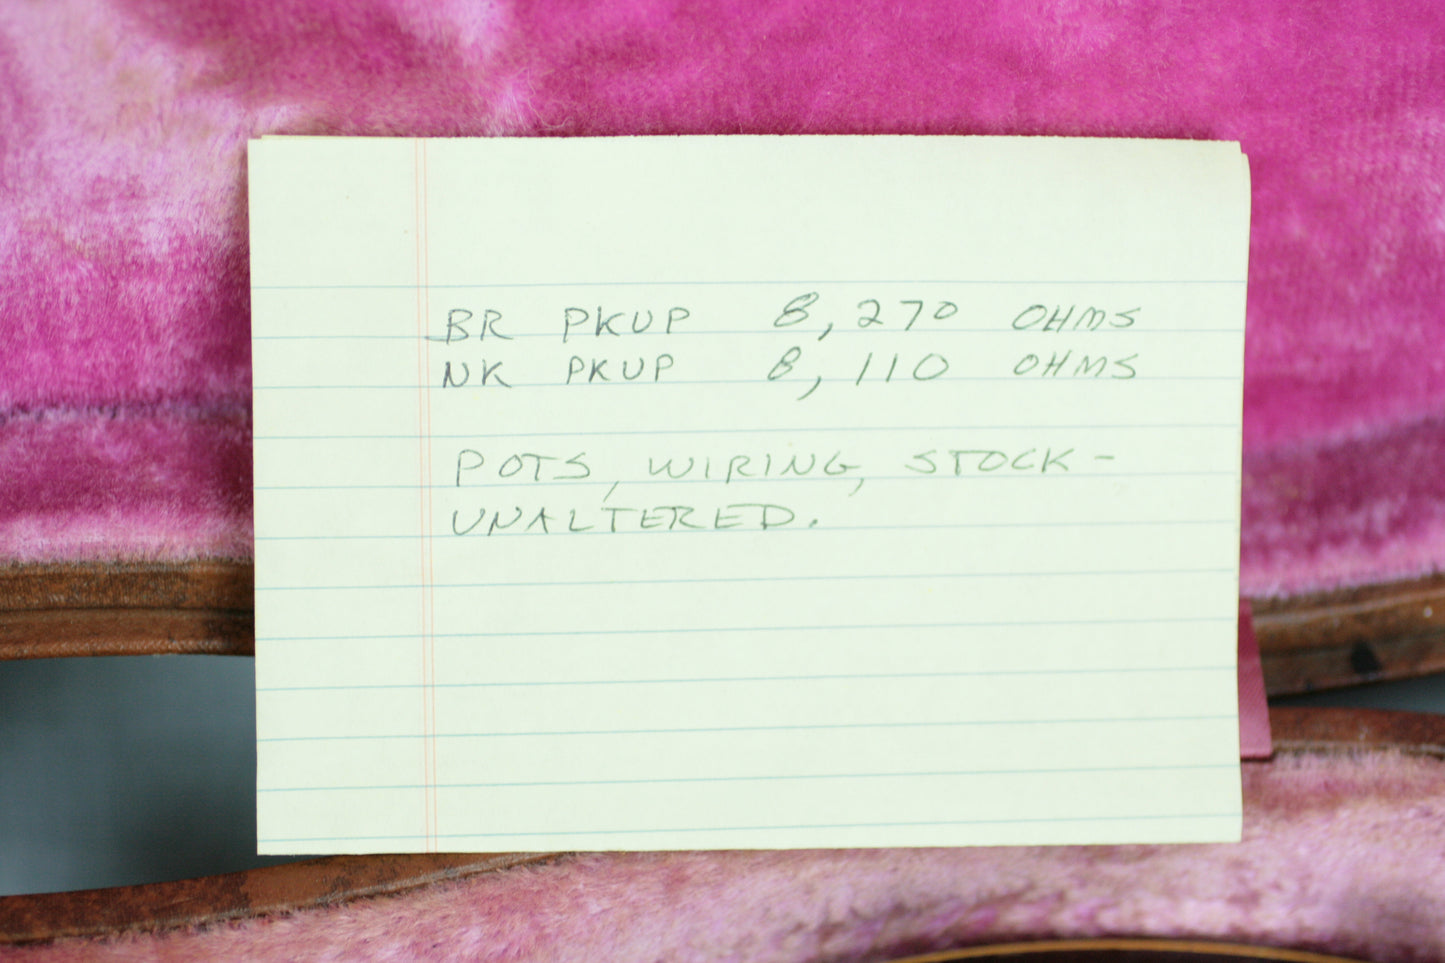 BR PKUP 8,270 OHMS
NK PKUP 8,110 OHMS
POTS, WIRING, STOCK -
UNALTERED.